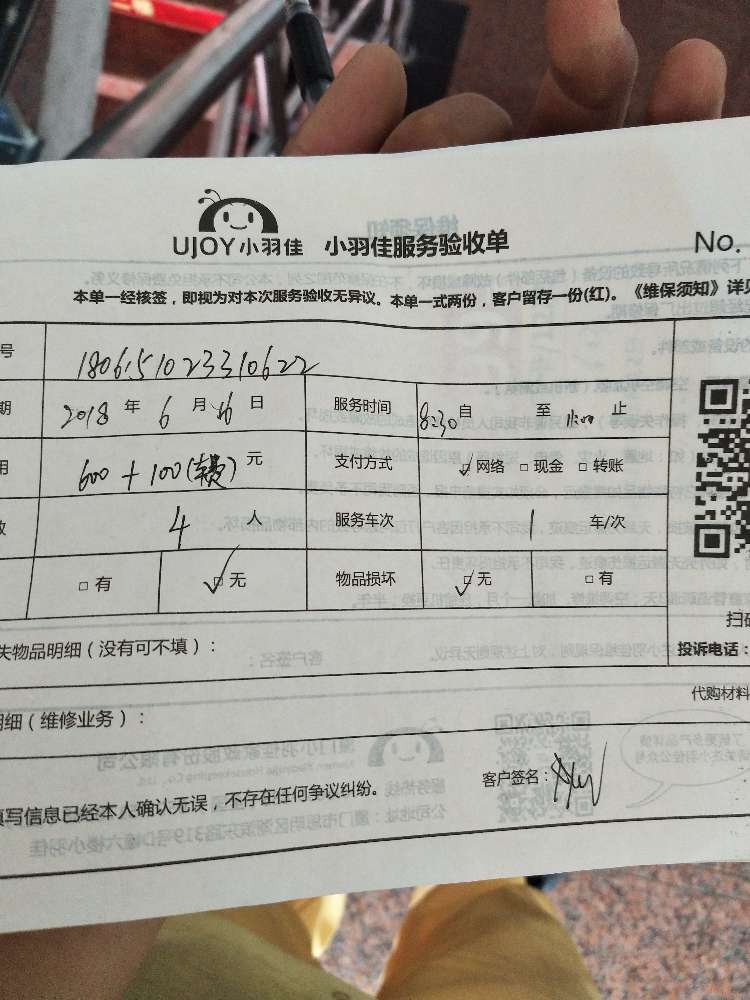 UJOY小羽佳 小羽佳服务验收单 No.
本单一经核签，即视为对本次服务验收无异议。本单一式两份，客户留存一份(红)。《维保须知》详见
号 1806151023310622
期 2018 年 6 月 16 日 服务时间 8:30 自 至 11:00 止
用 600+100(车费) 元 支付方式 ☑网络 □现金 □转账
数 4 人 服务车次 1 车/次
□有 ☑无 物品损坏 ☑无 □有
扫码
失物品明细（没有可不填）：
投诉电话：
代购材料
明细（维修业务）：
客户签名：
填写信息已经本人确认无误，不存在任何争议纠纷。